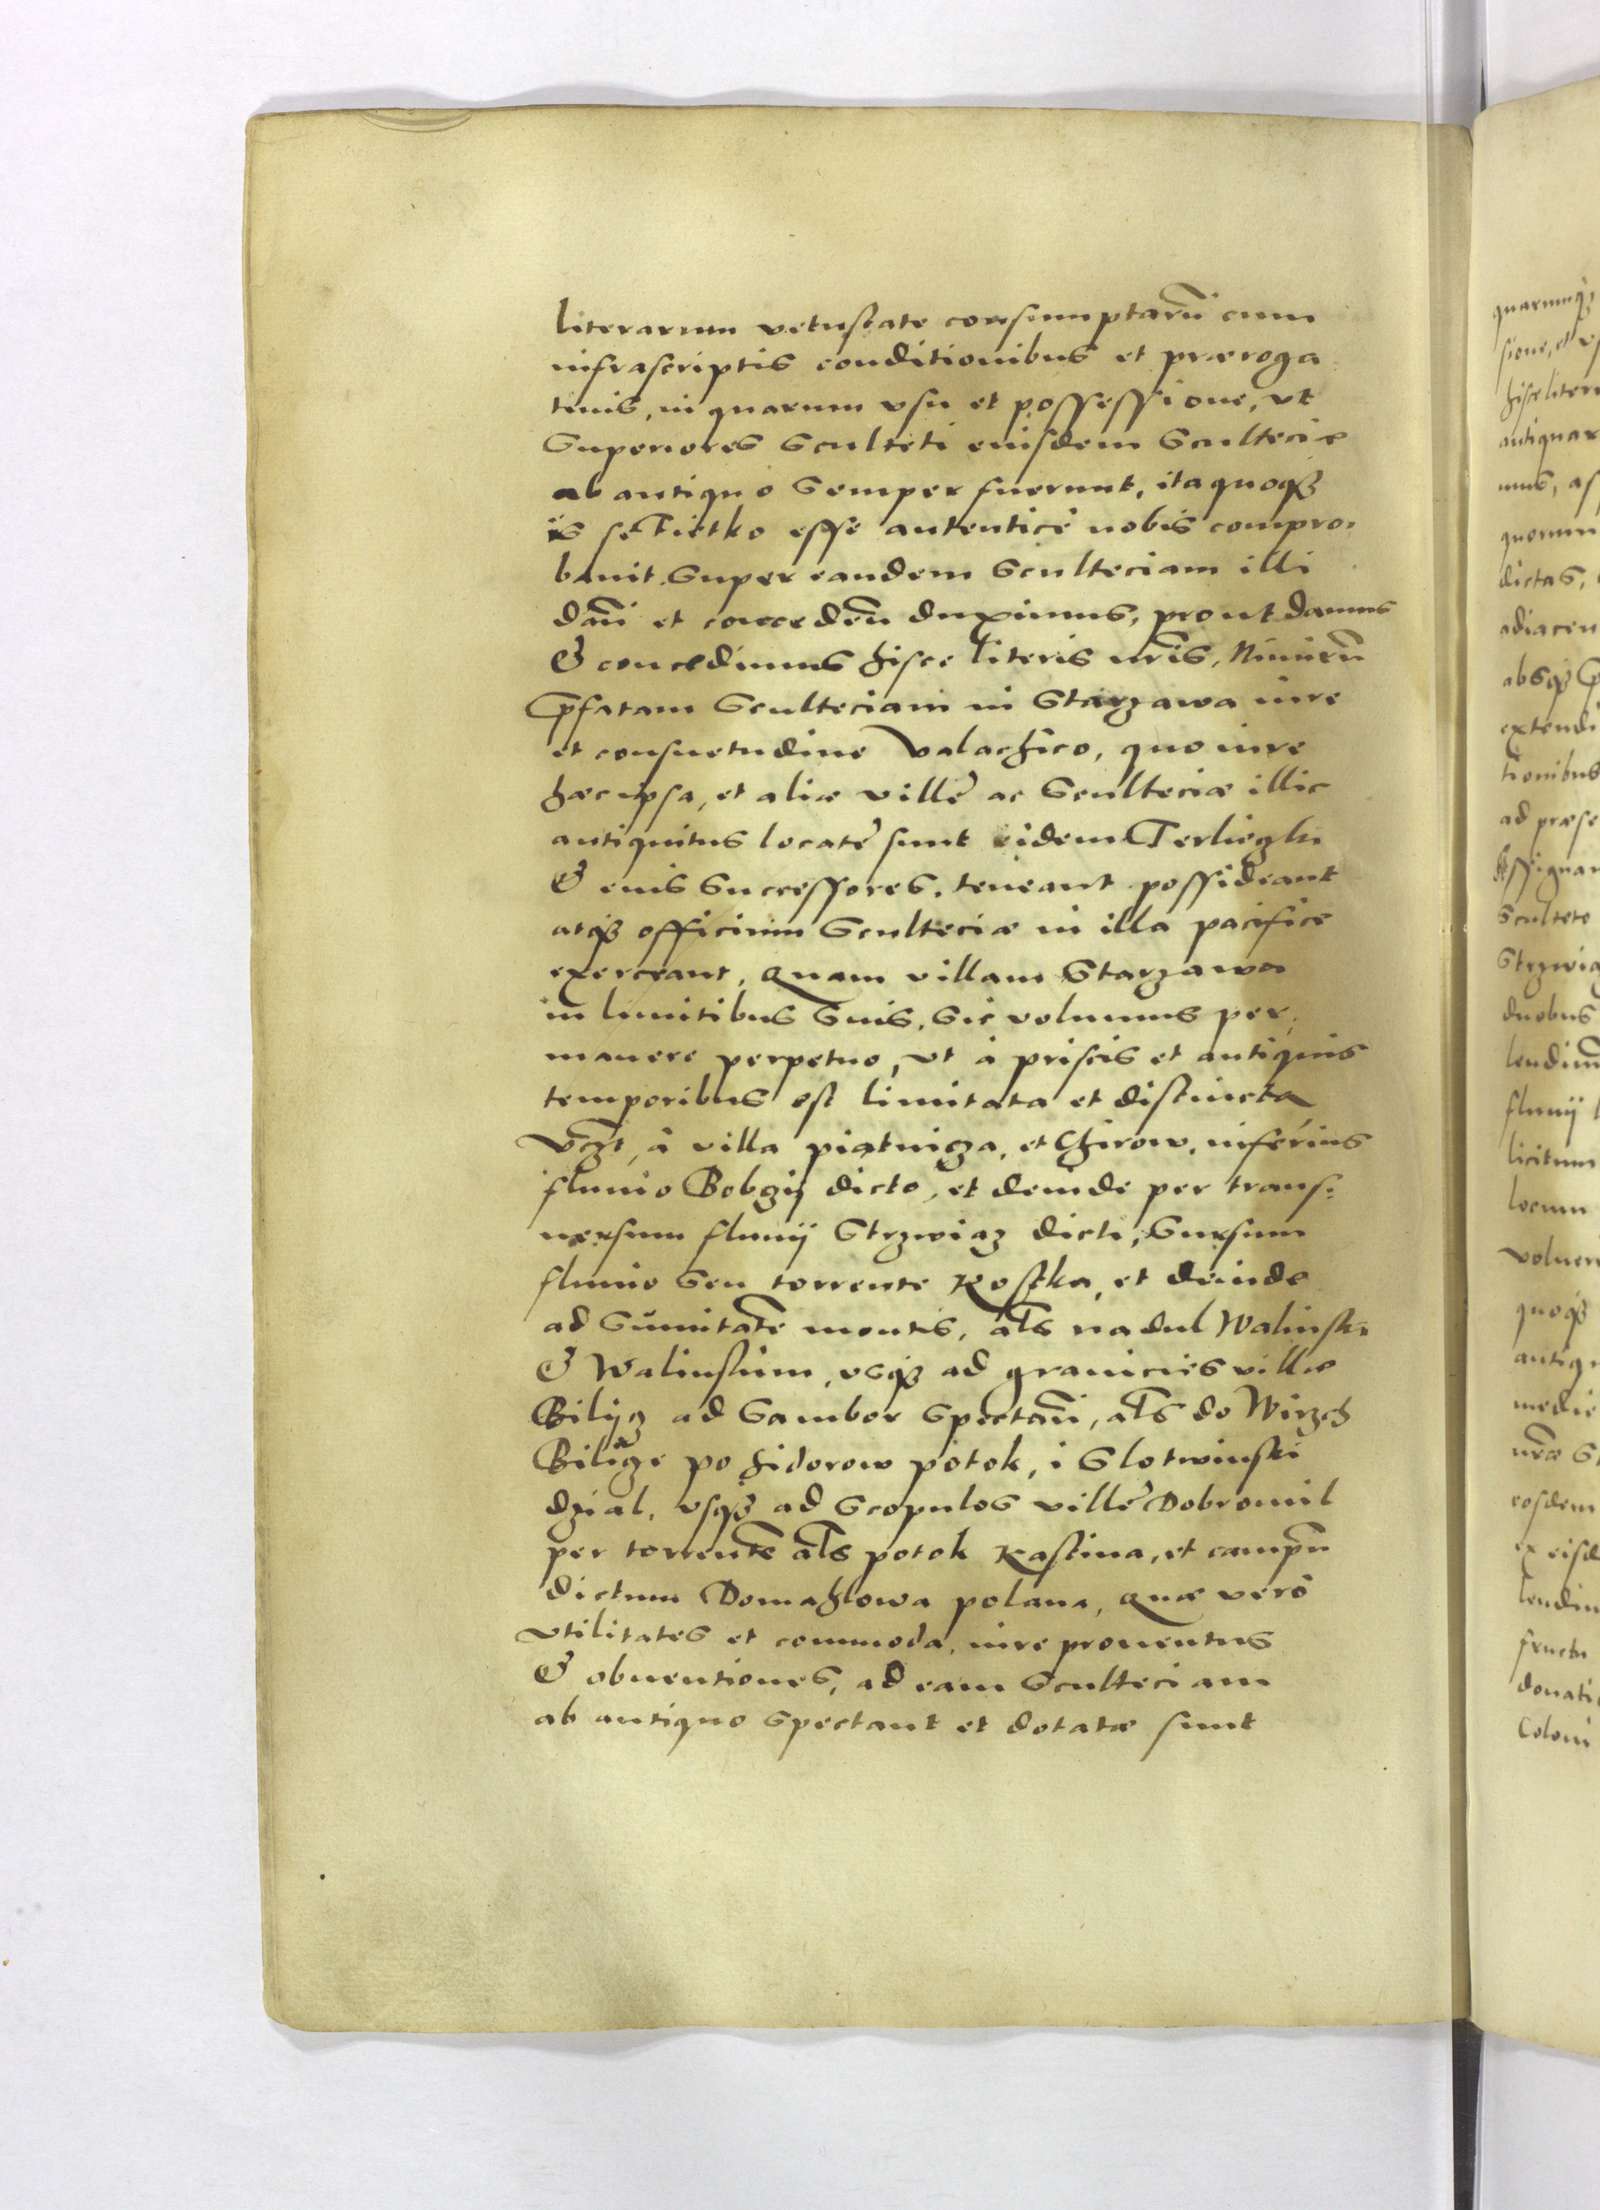 literarum vetustate consumptarũ cum
infrascriptis conditionibus et præroga
tiuis, in quarum vsu et possessione, vt
Superiores Sculteti eiusdem Sculteciæ
ab antiquo Semper fuerunt, ita quoqȝ
is se Fietko esse autenticè nobis compro,
bauit. Super eandem Sculteciam illi
dañ et conceden̄ duximus, prout damus
& concedimus hisce literis nrīs, Nimirū
Pfatam Scultecíam in Starzawa iure
et consuetudine Valachico, quo iure
hæc ipsa, et aliæ villę ac Sculteciæ illic
antiquitus locatę sunt eidem Terlieglu
& eius Successores, teneant possideant
atqȝ officium Sculteciæ in illa pacifice
exerceant, Quam villam Starzawa
in limitibus Suis, Sic volumus per,
manere perpetuo, vt à priscis et antiquis
temporibus est limitata et distincta
Vczt, à villa piątnicza, et Chirow, inferius
fluuio Bobgij dicto, et deinde per trans,
uersum fluuij Strzwiąz dicti, Sursum
fluuio Seu torrente Rostka, et deinde
ad Sum̄itatē montis, als na dul Walinski
& Walinskim, vsqȝ ad granicies villæ
Bilijcz ad Sambor Spectan̄, als do Wirzch
Bilicze po hidorow potok, i Slotwinski
dzial, vsqȝ ad Scopulos villę Dobromil
per torrentē als potok Rastina, et campū
dictum Domachlowa polana, Quæ verò
Vtilitates et commoda, iure prouentus
& obuentiones, ad eam Scultecíam
ab antiquo Spectant et dotatæ sunt